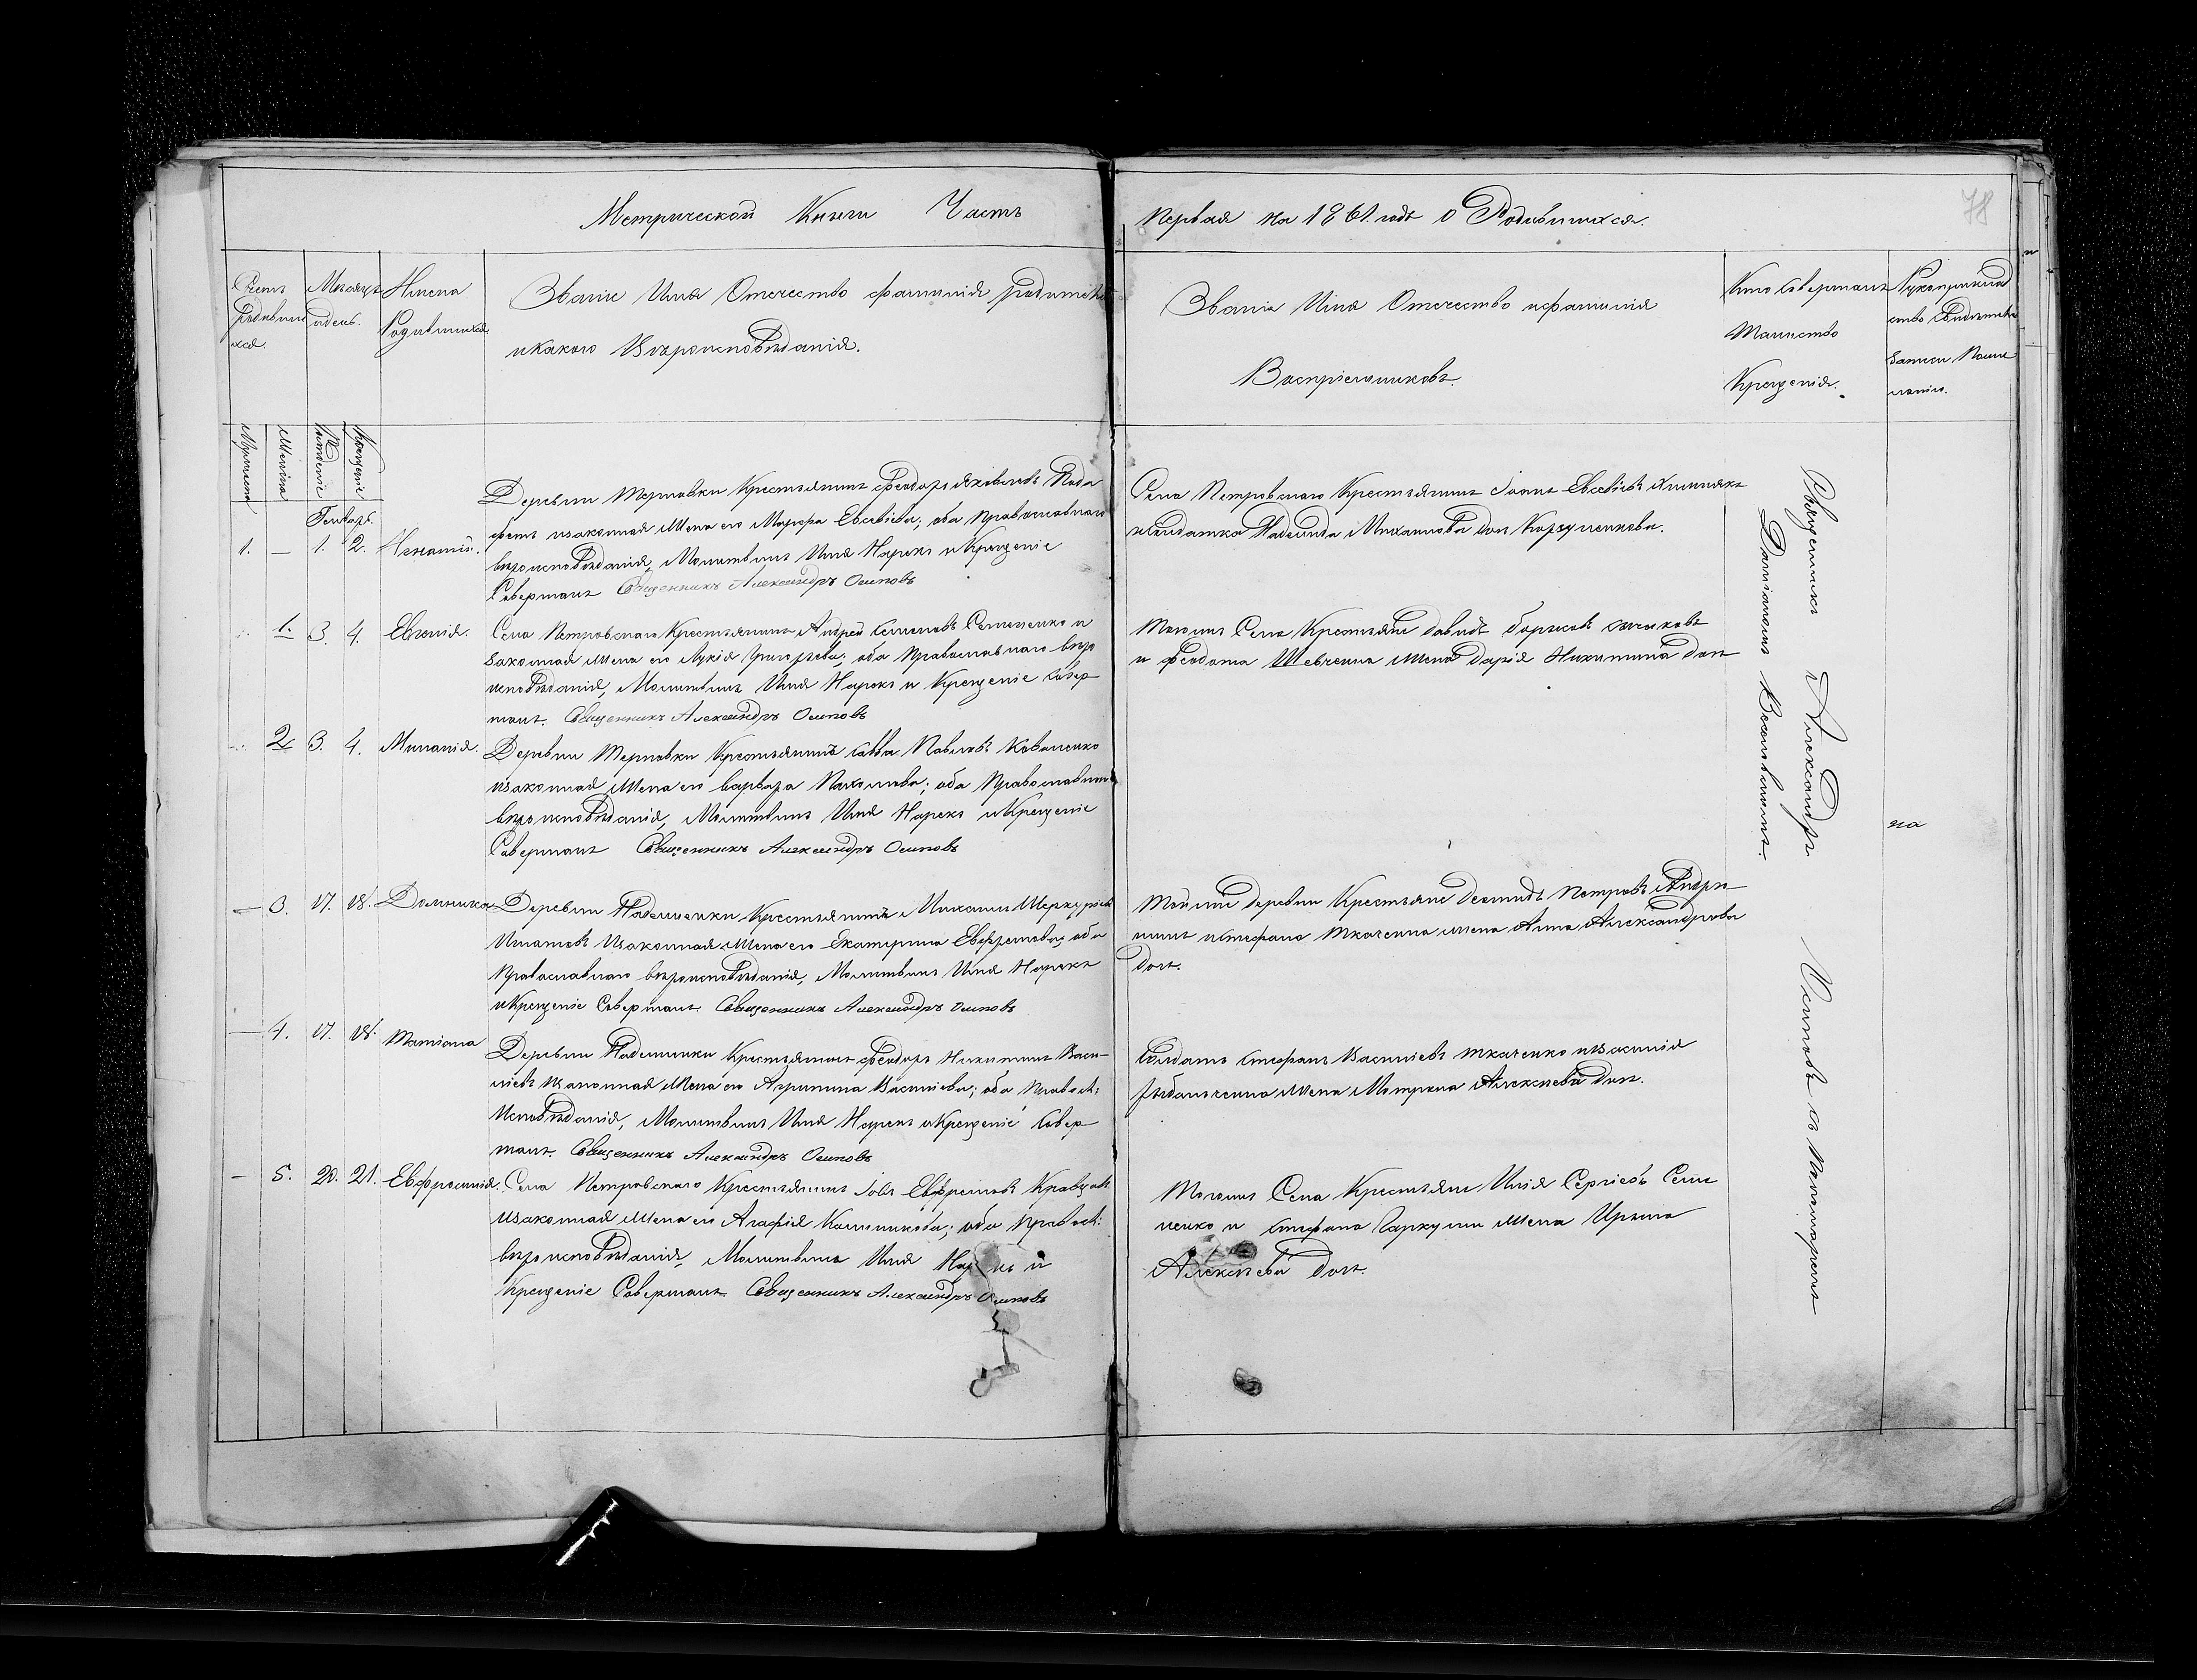 Метрической Книги Часть
первая на 1861. годъ о Родившихся.
78
Счетъ
Родивши
хся.
Месяцъ
и день.
Имена
Родившихся.
Званіе Имя Отечество фамилія родителей
и какого Вѣроисповѣданія.
Званіе Имя Отечество и фамилія
Воспріемниковъ.
Кто Совершалъ
Таинство
Крещенія.
Рукоприклад
ство Свидѣтелей
записи По жела
нію.
Мужеска
Женска
Рожденіе
Крещеніе
Генварь.
1. — 1. 2. Игнатій.
Деревни Терновки Крестьянинъ Феодоръ Яковлевъ
и законная жена его Марфа Евсевіева; оба Православнаго
вѣроисповѣданія, Молитвилъ Имя Нарекъ и Крещеніе
Совершалъ Священникъ Александръ Осиповъ
Села Петровского Крестьянинъ Іоаннъ Евсевіевъ
и Солдатка Надежда Михаилова доч.
1. 3. 4. Евгенія.
Села Петровского Крестьянинъ Андрей Семеновъ Семененко и
законная жена его Лукія Григорьева; оба Православнаго вѣро
исповѣданія, Молитвилъ Имя Нарекъ и Крещеніе Совер
шалъ. Священникъ Александръ Осиповъ
Тогожъ Села Крестьяне Давидъ Борисовъ
и Феодота Шевченка жена Дарія Никитина доч
2 3. 4. Миланія.
Деревни Терновки Крестьянинъ Савва Павловъ Коваленко
и законная жена его Варвара Пахомова; оба Православнаго
вѣроисповѣданія, Молитвилъ Имя Нарекъ и Крещеніе
Совершалъ Священникъ Александръ Осиповъ
— 3. 17. 18. Домника
Деревни Надежовки Крестьянинъ Михаилъ Меркуріевъ
Игнатовъ и законная жена его Екатерина Евфремова; оба
Православнаго вѣроисповѣданія, Молитвилъ Имя Нарекъ
и Крещеніе Совершалъ Священникъ Александръ Осиповъ
Тойжъ деревни Крестьяне Демидъ Петровъ
и Стефана Ткаченка жена Анна Александрова
доч.
— 4. 17. 18. Татіана
Деревни Надежовки Крестьянинъ Феодоръ Никитинъ Васи-
ліевъ и законная жена его Агрипина Василіева; оба Правосл:
Исповѣданія, Молитвилъ Имя Нарекъ и Крещеніе Совер
шалъ. Священникъ Александръ Осиповъ
Солдатъ Стефанъ Василіевъ Ткаченко и Василія
жена Матрена Алексѣева доч.
— 5. 20. 21. Евфросинія.
Села Петровского Крестьянинъ Іовъ Евфремовъ Кравцовъ
и законная жена его Агафія; оба Правосл:
вѣроисповѣданія, Молитвилъ Имя Нарекъ и
Крещеніе Совершалъ Священникъ Александръ Осиповъ
Тогожъ Села Крестьяне Илія Сергіевъ Семе
ненко и Стефана Гаркуши жена Ирина
Алексѣева доч.
Священникъ Александръ Осиповъ съ Пономаремъ
Даміаномъ